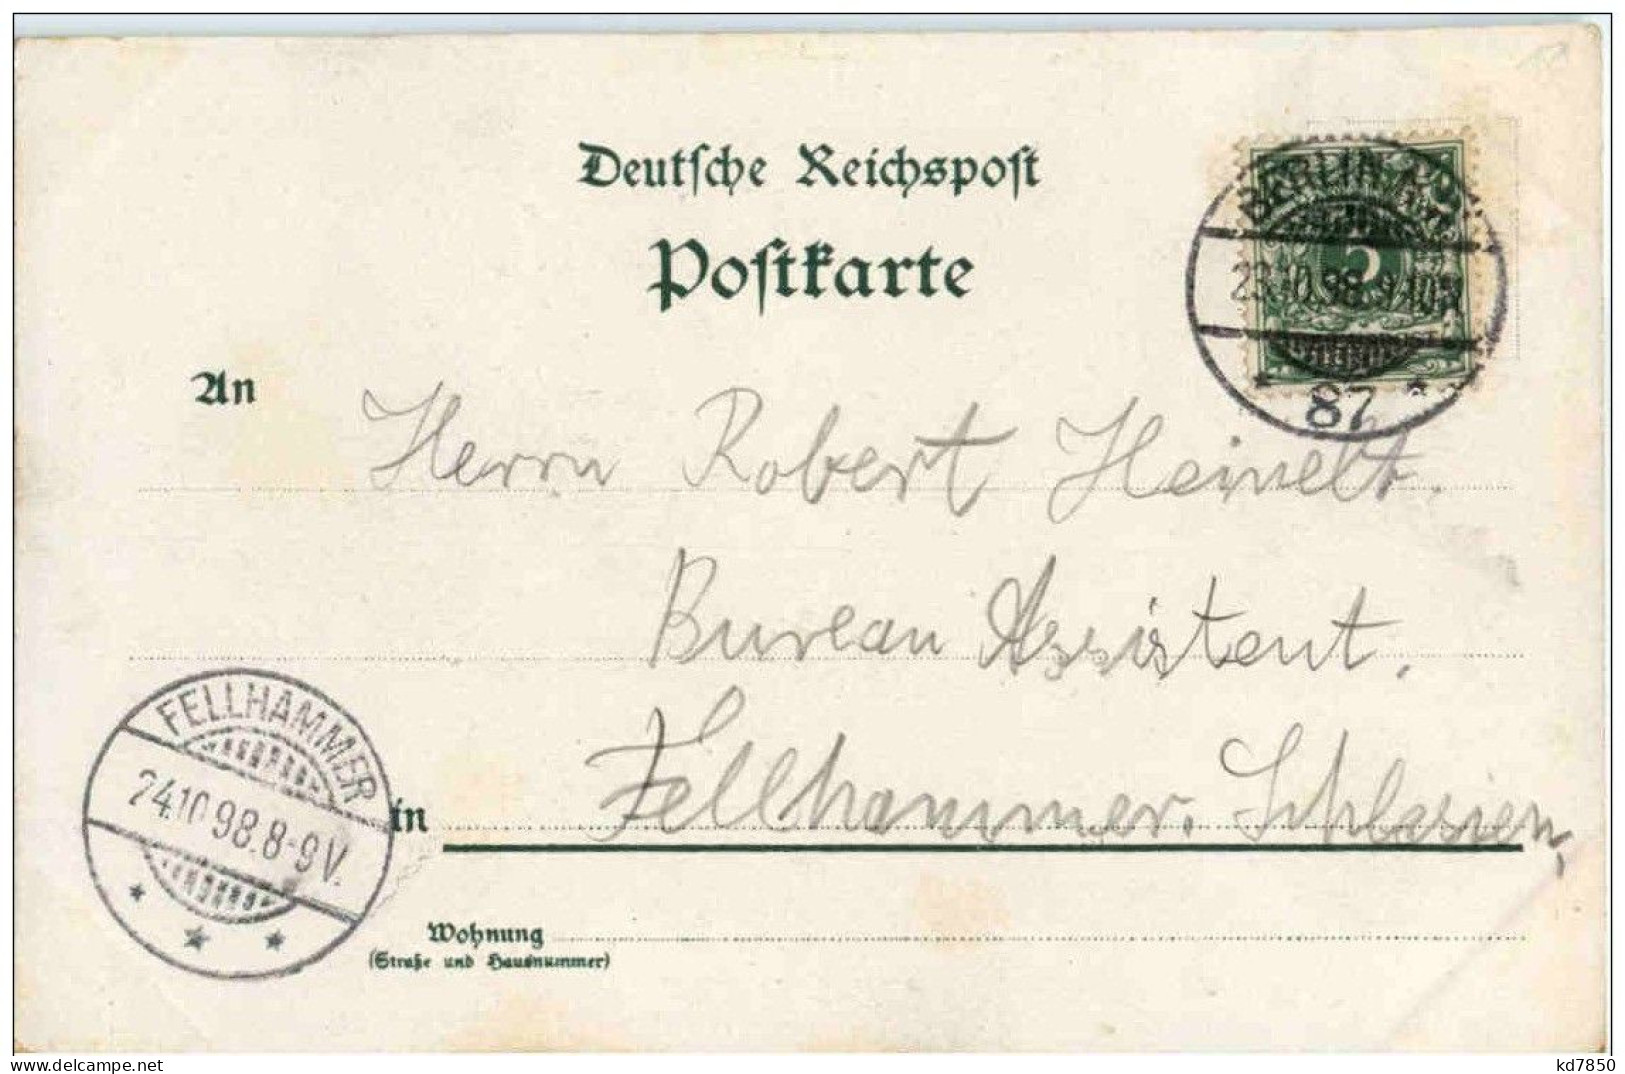 Deutsche Reichspost
Postkarte
BERLIN
23.10.98. 9-10
5
* 87 *
An
Herrn Robert Heinelt.
Bureau Assistent.
in Fellhammer. Schlesien,
FELLHAMMER
24.10 98. 8-9 V.
Wohnung
(Straße und Hausnummer)
www.delcampe.net
kd7850